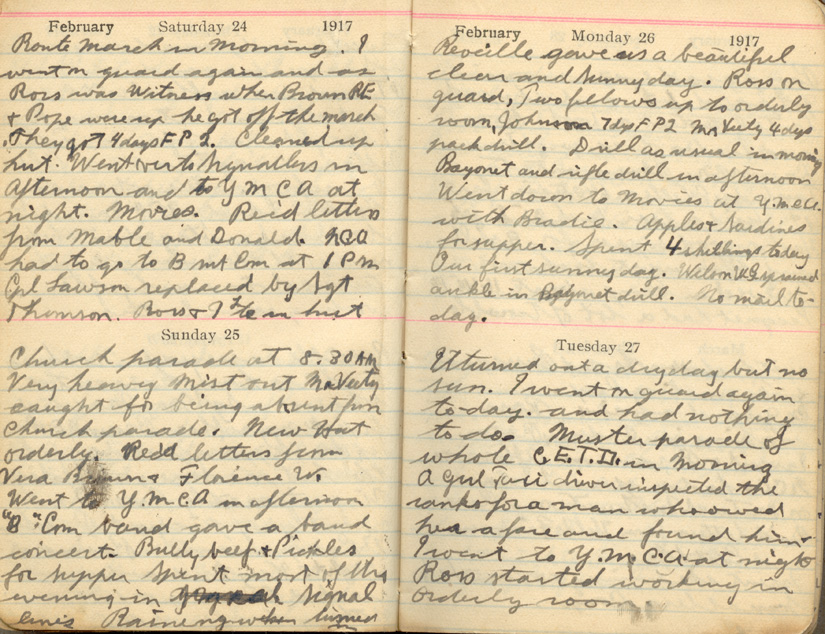 February Saturday 24 1917
Route march in morning. I
went on guard again and as
Ross was witness when Brown RE
& Pope were up he got off the march
. They got 4 days F P 2. Cleaned up
hut. Went over to in
afternoon and to Y M C A at
night. Movies. Rec'd letters
from Mable and Donald.
had to go to B Com at 1 P m
Cpl Lawson replaced by Sgt
Thomson. Ross & I in hut
Sunday 25
Church parade at 8.30 AM
Very heavy mist out McVeety
caught for being absent from
church parade. New Hut
orderly. Rec'd letters from
Vera Brown & Florence W.
Went to Y.M.C.A in afternoon
"B" Com band gave a band
concert. Bully beef & Pickles
for supper Spent most of the
evening in Signal
lines Raining when turned
February Monday 26 1917
Reveille gave us a beautiful
clear and sunny day. Ross on
guard, Two fellows up to orderly
room, Johnson 7 dys F P 2 McVeety 4 dys
pack drill. Drill as usual in morning
Bayonet and rifle drill in afternoon
Went down to Movies at Y.M.C.A.
with Bradie. Apples & Sardines
for supper. Spent 4 shillings today
Our first sunny day. Wilson WG sprained
ankle in Bayonet drill. No mail to-
day.
Tuesday 27
It turned out a dry day but no
sun. I went on guard again
to-day. and had nothing
to do. Muster parade of
whole C.E.T.D. in morning
A girl Taxi driver inspected the
ranks for a man who owed
her a fare and found him.
I went to Y.M.C.A. at night
Ross started working in
orderly room